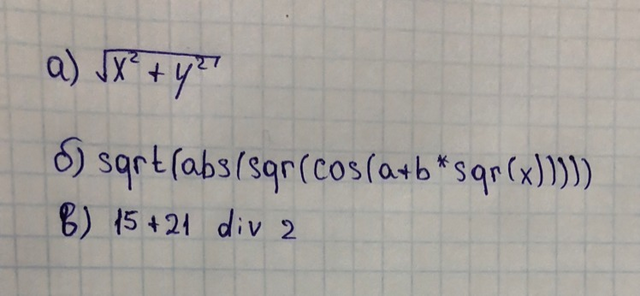 а) √x² + y²
б) sqrt(abs(sqr(cos(a+b*sqr(x)))))
в) 15+21 div 2